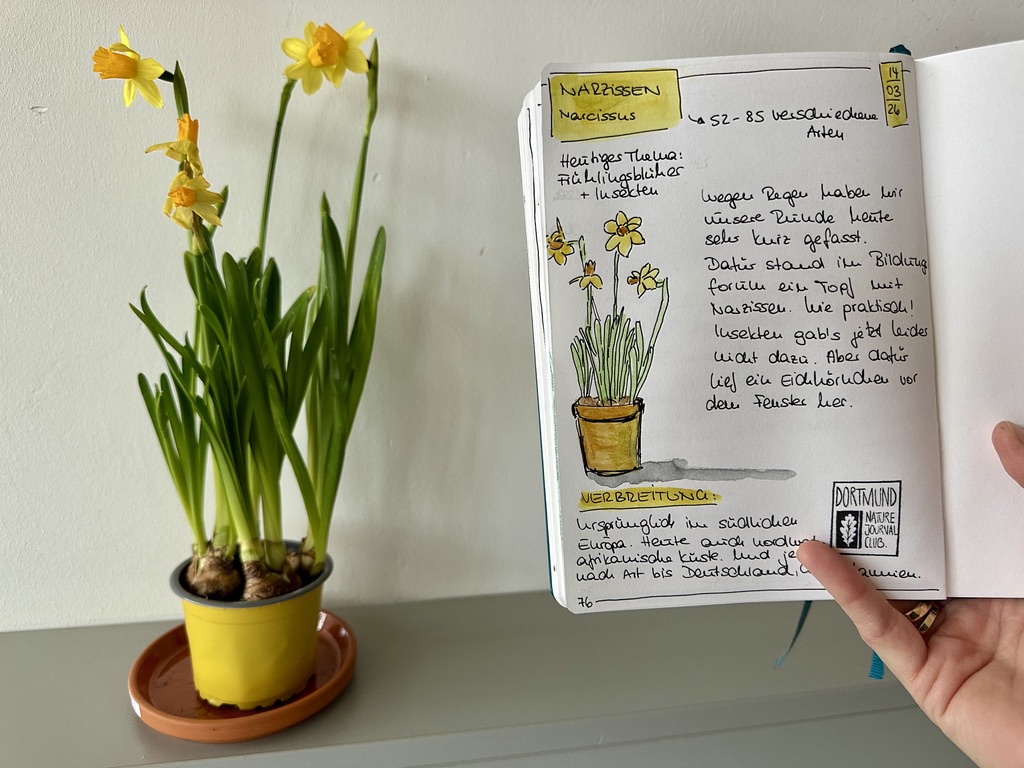 NARZISSEN
Narcissus
14
03
26
↳ 52-85 verschiedene
Arten
Heutiges Thema:
Frühlingsblüher
+ Insekten
Wegen Regen haben wir
unsere Runde heute
sehr kurz gefasst.
Dafür stand im Bildungs
forum ein Topf mit
Narzissen. Wie praktisch!
Insekten gab's jetzt leider
nicht dazu. Aber dafür
lief ein Eichhörnchen vor
dem Fenster her.
VERBREITUNG:
Ursprünglich im südlichen
Europa. Heute auch
afrikanische Küste. Und
nach Art bis Deutschland,
DORTMUND
NATURE
JOURNAL
CLUB.
76